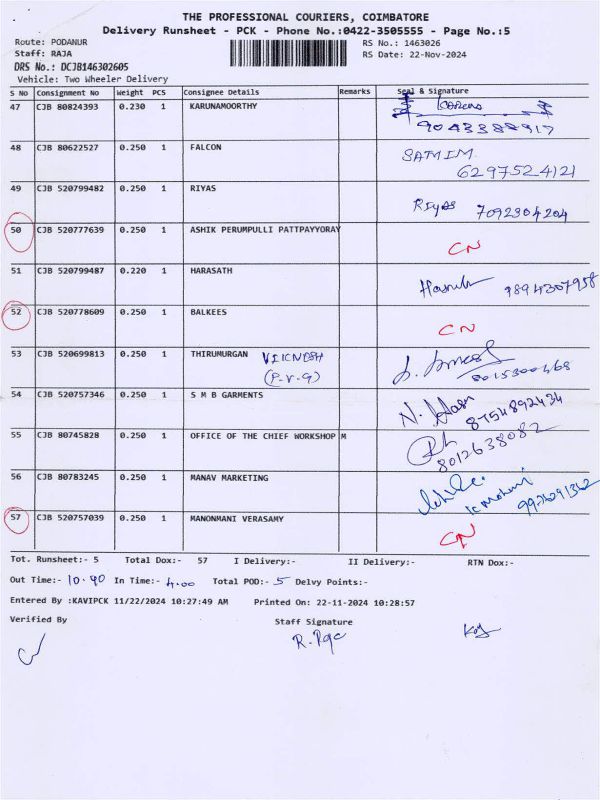 THE PROFESSIONAL COURIERS, COIMBATORE
Delivery Runsheet - PCK - Phone No.:0422-3505555 - Page No.:5
Route: PODANUR RS No.: 1463026
Staff: RAJA RS Date: 22-Nov-2024
DRS No.: DCJB146302605
Vehicle: Two Wheeler Delivery
S No Consignment No Weight PCS Consignee Details Remarks Seal & Signature
47 CJB 80824393 0.230 1 KARUNAMOORTHY
9043388917
48 CJB 80622527 0.250 1 FALCON SATMIM.
6297524121
49 CJB 520799482 0.250 1 RIYAS Riyas 7092304204
50 CJB 520777639 0.250 1 ASHIK PERUMPULLI PATTPAYYORAY
CN
51 CJB 520799487 0.220 1 HARASATH
9894307958
52 CJB 520778609 0.250 1 BALKEES
CN
53 CJB 520699813 0.250 1 THIRUMURGAN VIKNESH
(P.V.G)
8015300468
54 CJB 520757346 0.250 1 S M B GARMENTS
8754892434
55 CJB 80745828 0.250 1 OFFICE OF THE CHIEF WORKSHOP M
8012638082
56 CJB 80783245 0.250 1 MANAV MARKETING
57 CJB 520757039 0.250 1 MANONMANI VERASAMY
CN
Tot. Runsheet:- 5 Total Dox:- 57 I Delivery:- II Delivery:- RTN Dox:-
Out Time:- 10.40 In Time:- 4.00 Total POD:- 5 Delvy Points:-
Entered By :KAVIPCK 11/22/2024 10:27:49 AM Printed On: 22-11-2024 10:28:57
Verified By Staff Signature
R. Raja